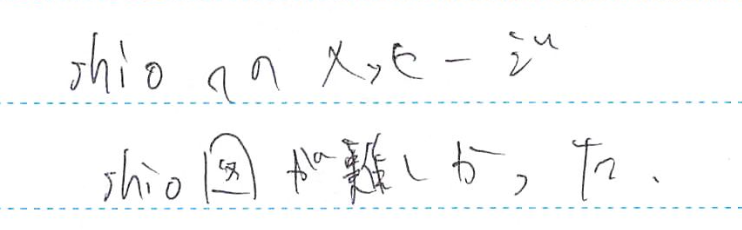 shioへのメッセージ
shio図が難しかった.